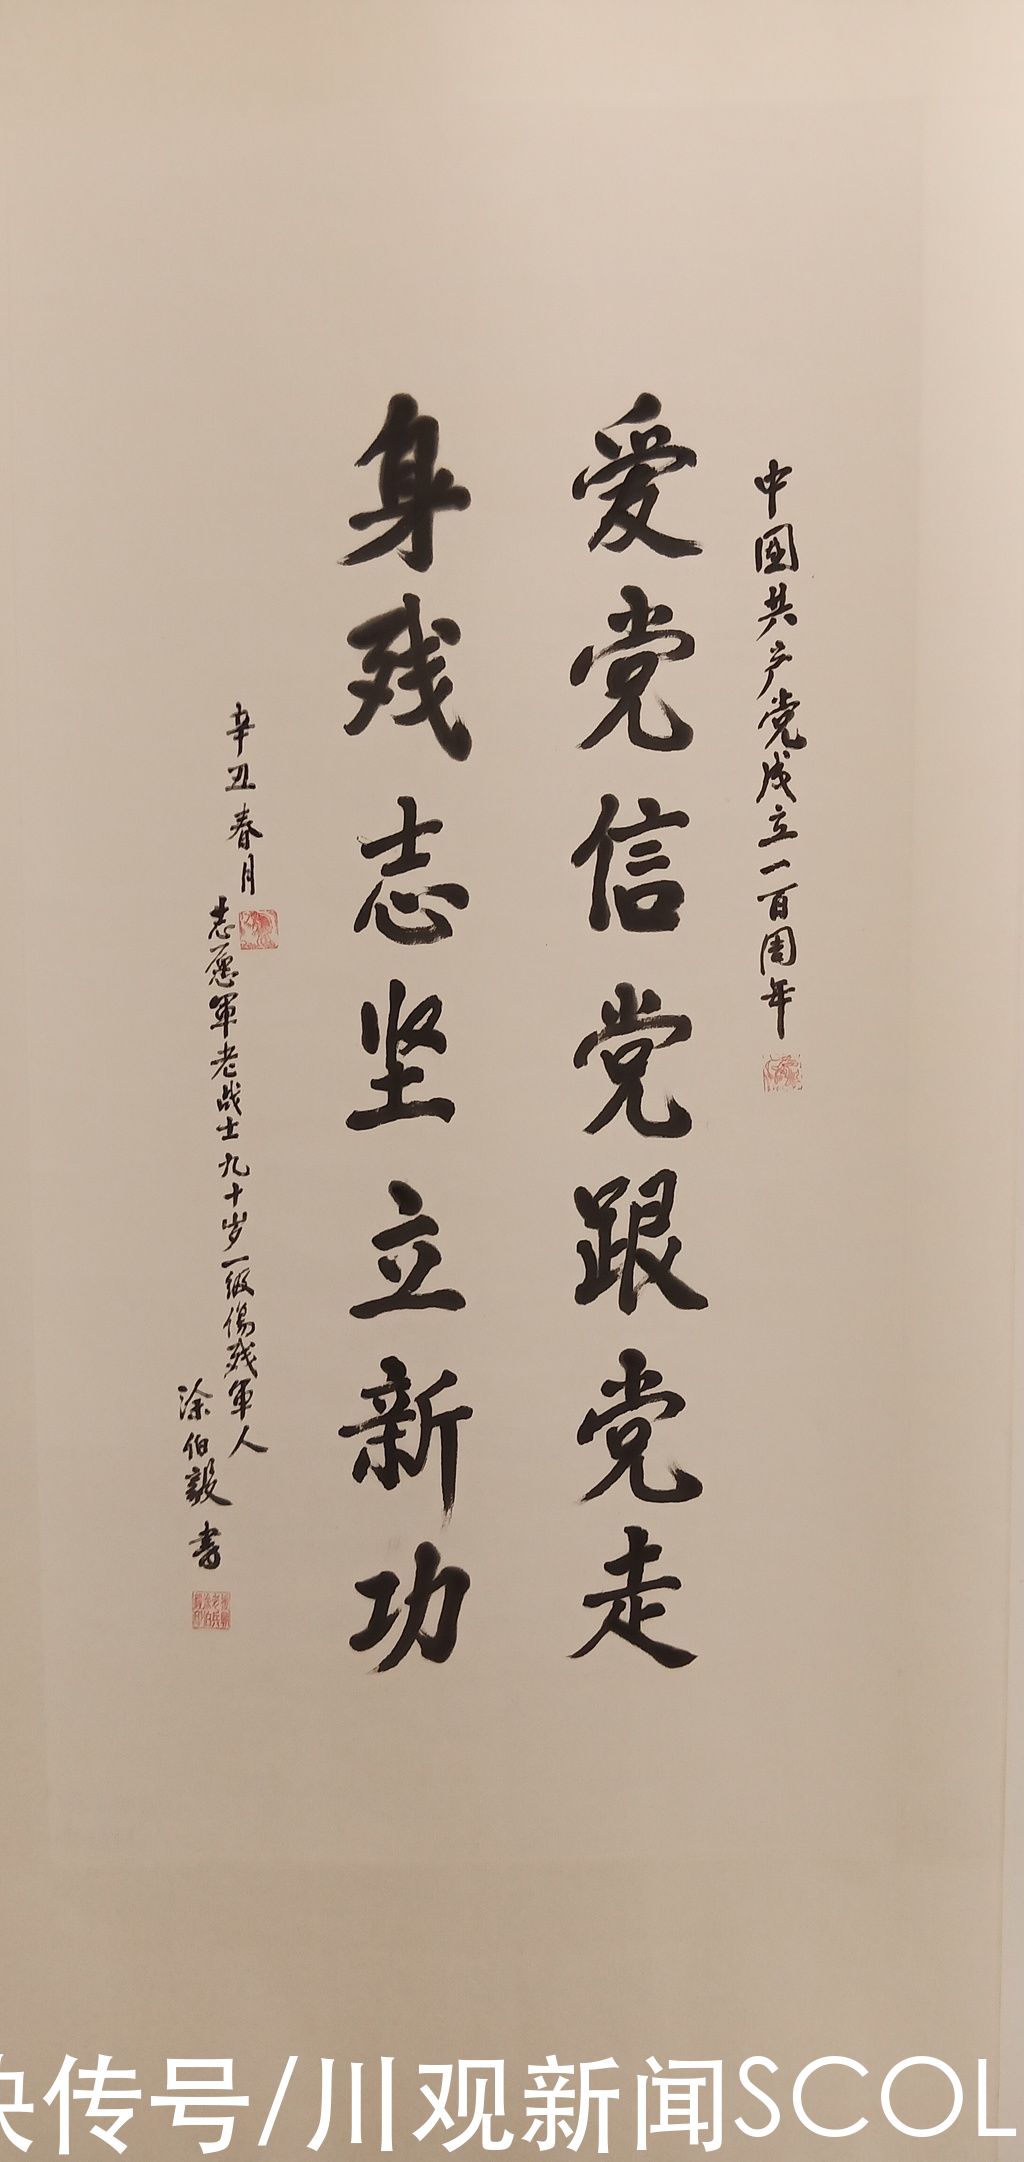 中国共产党成立一百周年
爱党信党跟党走
身残志坚立新功
辛丑春月
志愿軍老战士九十岁一级傷残軍人
涂伯毅書
快传号/川观新闻SCOL